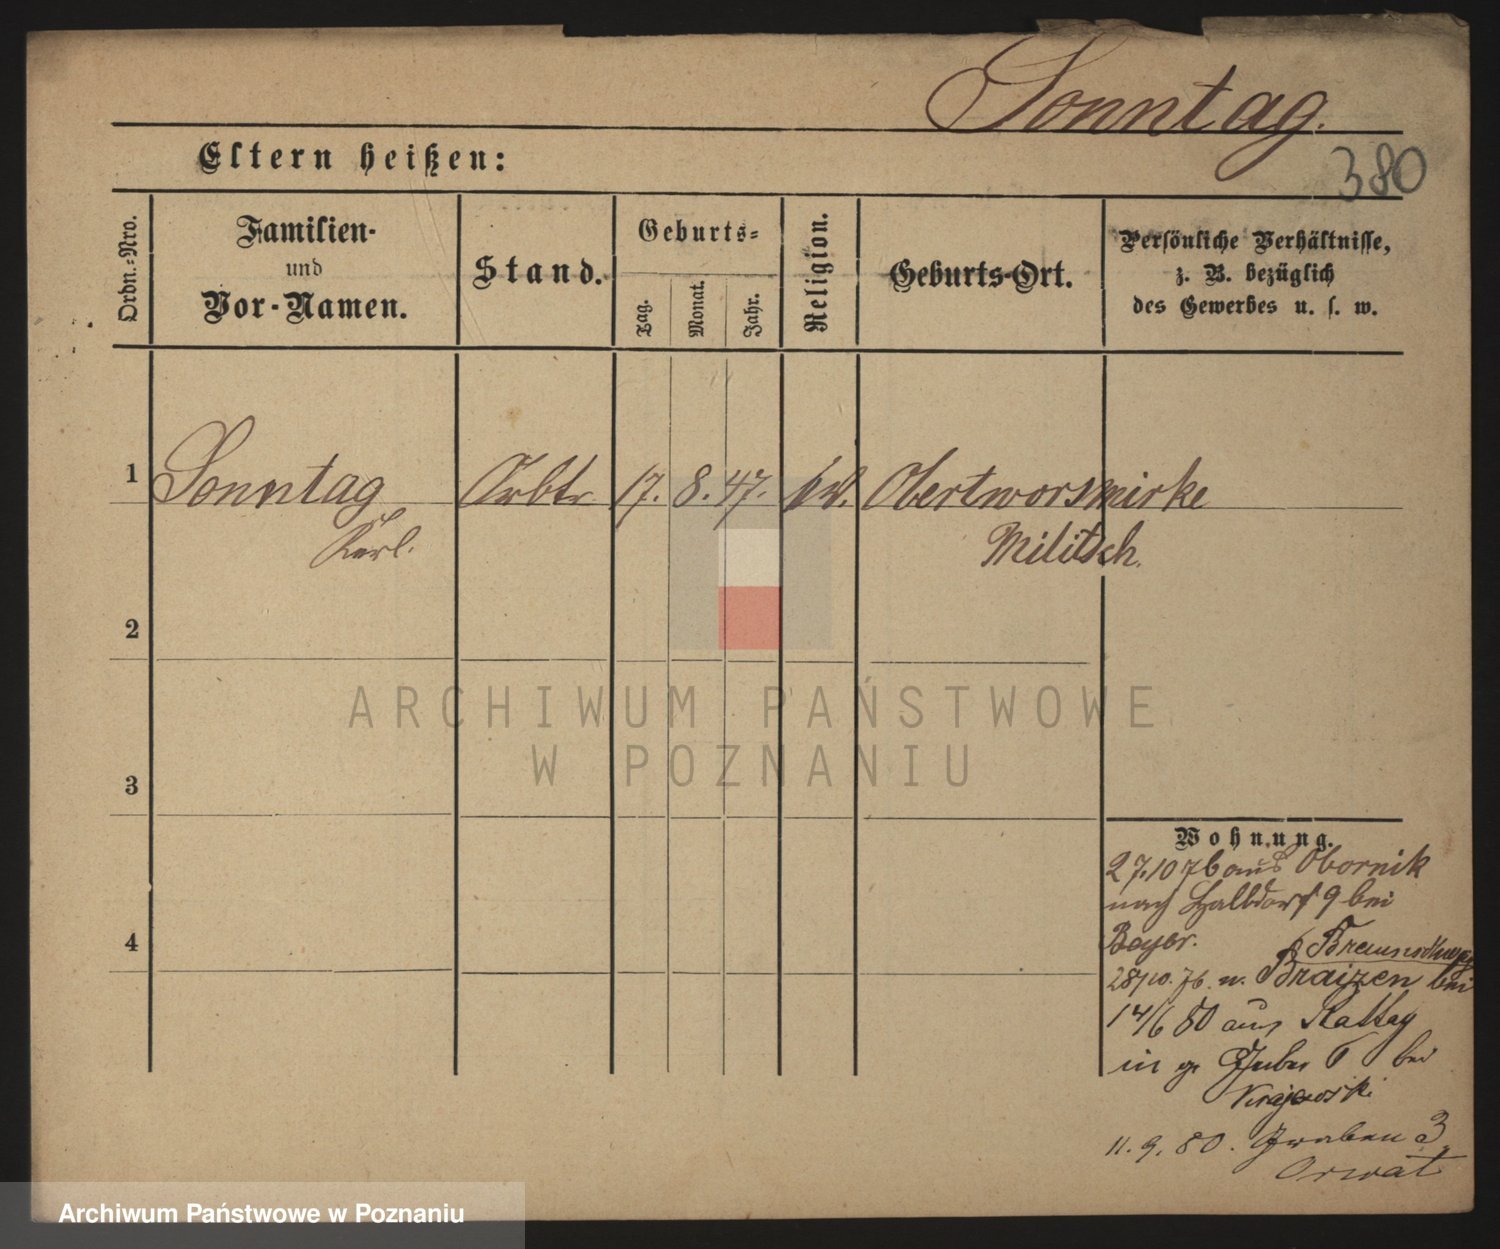 Sonntag.
380
Eltern heißen:
Ordn.-Nro.
Familien-
und
Vor-Namen.
Stand.
Geburts-
Tag.
Monat.
Jahr.
Religion.
Geburts-Ort.
Persönliche Verhältnisse,
z. B. bezüglich
des Gewerbes u. s. w.
1 Sonntag Arbtr. 17. 8. 47. Obertworsmirke
Karl. Militsch.
2
3
4
ARCHIWUM PAŃSTWOWE
W POZNANIU
Wohnung.
27.10 76 aus Obornik
nach Halbdorf 9 bei
Beyer.
28/10. 76. n. bei
14/6 80 aus Rattay
in bei
Krajewski
11. 9. 80. Graben 3
Orwat
Archiwum Państwowe w Poznaniu